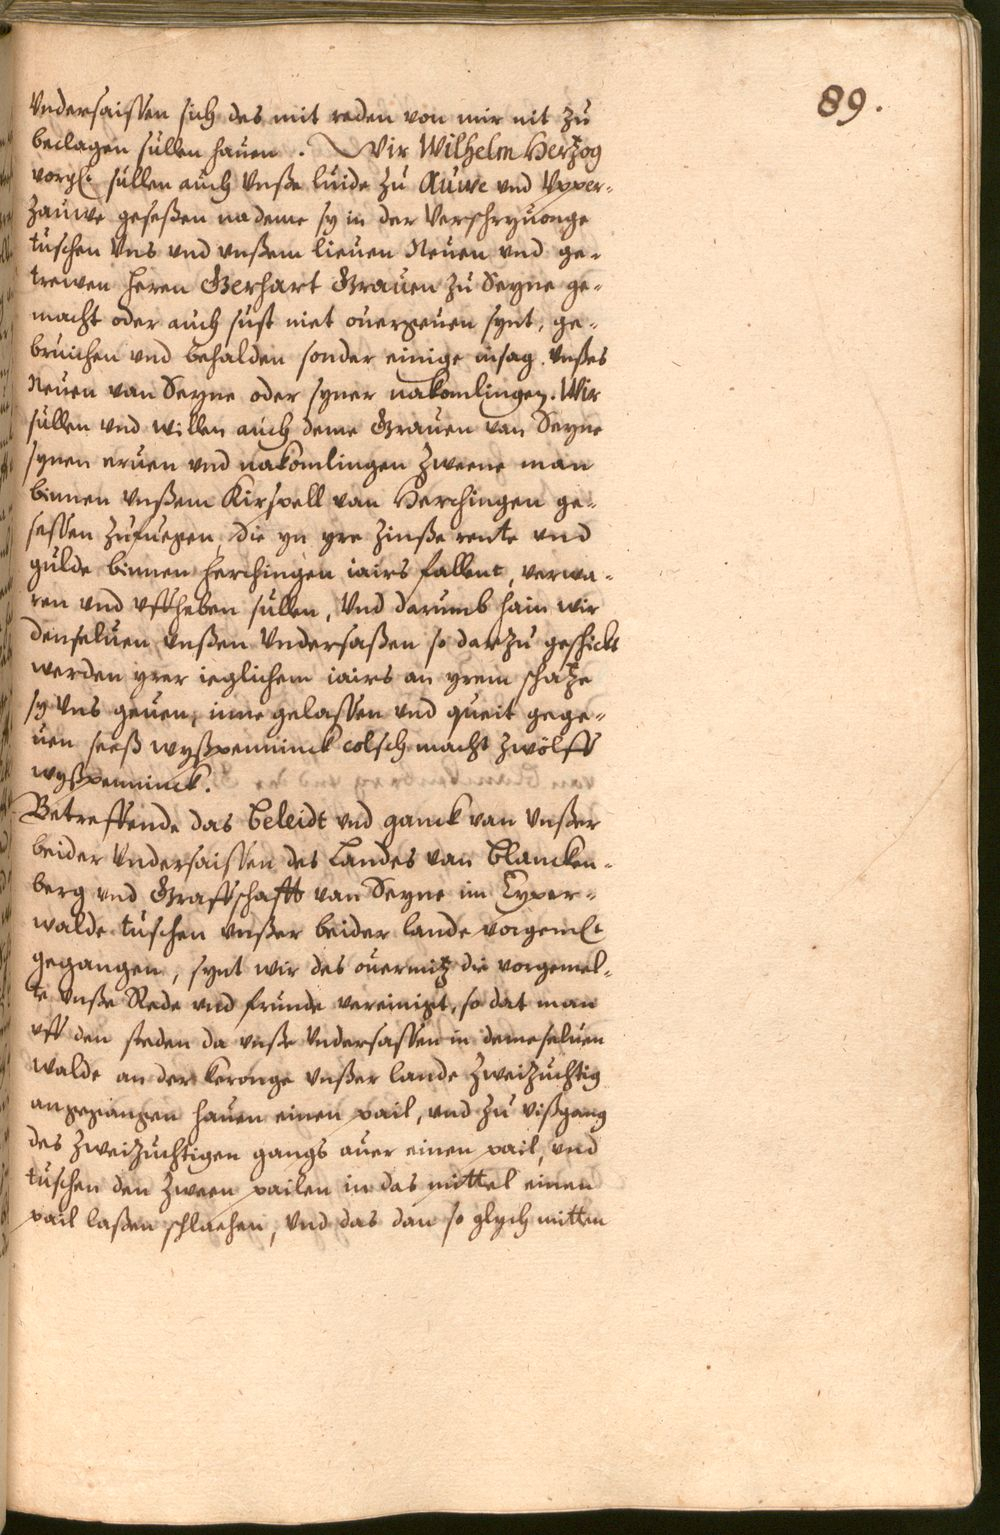 89.
Vndersaissen sich des mit reden von mir nit zu
beclagen sullen hauen. Wir Wilhelm Hertzog
vorgs. sullen auch Vnße luide zu Auwe vnd Vpper-
zauwe geseßen na deme sy in der Verschryuonge
tuschen Vns vnd vnßem lieuen Neuen vnd ge-
trewen heren Gerhart Grauen zu Seyne ge-
macht oder auch sust niet ouergeuen synt, ge-
bruichen vnd behalden sonder einige insag vnßes
Neuen van Seyne oder syner nakomlingen. Wir
sullen vnd willen auch deme Grauen van Seyne
synen eruen vnd nakomlingen zweene man
binnen vnßem Kirspell van Herchingen ge-
sessen zufuegen, die yn yre zinße rente vnd
gulde binnen herchingen iairs fallent, verwa-
ren vnd vffheben sullen, Vnd darumb hain wir
denseluen vnßen Vndersaßen so darzu geschickt
werden yrer ieglichem iairs an yrem schatze
sy Vns geuen, inne gelassen vnd queit gege-
uen seeß wyßpenninck colsch macht zwölff
wyßpenninck.
Betreffende das beleidt vnd ganck van Vnßer
beider Vndersaissen des Landes van Blancken-
berg vnd Graffschafft van Seyne im Eyper-
walde tuschen vnßer beider lande vorgemelt
gegangen, synt wir des ouermitz die vorgemel-
te vnße Rede vnd frunde vereinigt, so dat man
vff den steden da vnße Vndersassen in demeseluen
walde an der keronge vnßer lande zweizuchtig
angegangen hauen einen pail, vnd zu vißgang
des zweizuchtigen gangs auer einen pail, vnd
tuschen den zween pailen in das mittel einen
pail laßen schlaehen, Vnd das dan so glych mitten